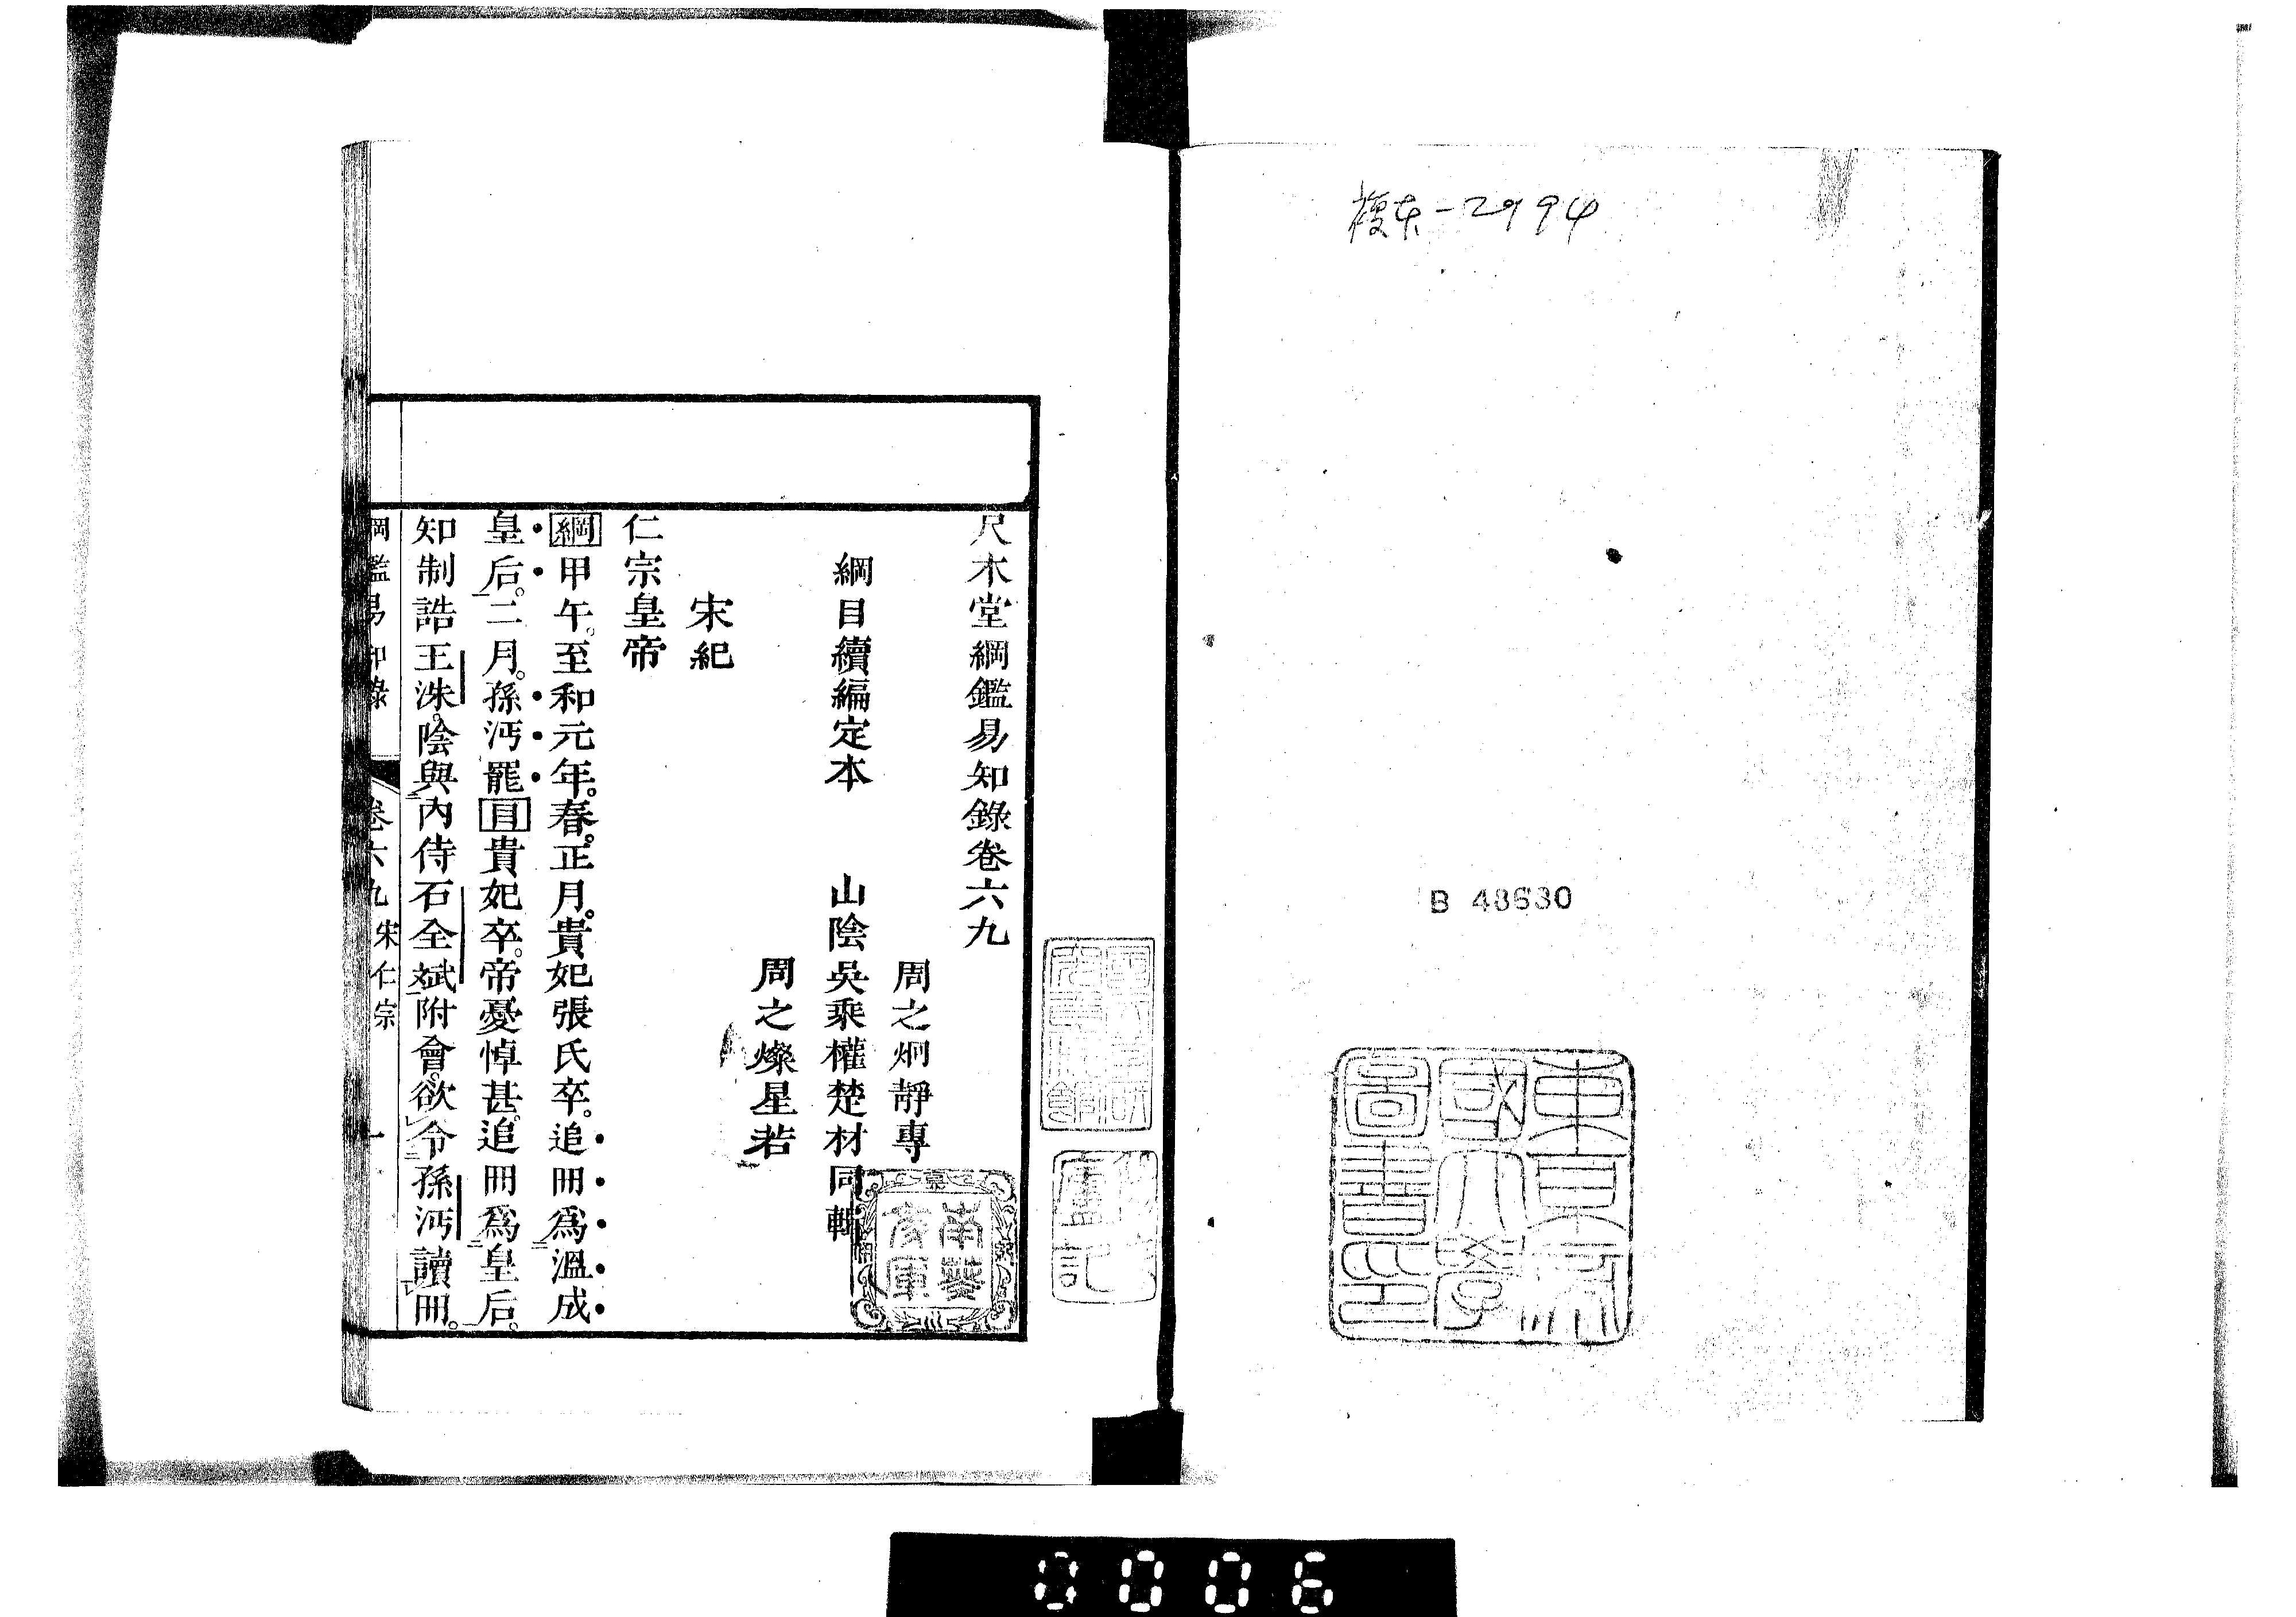 複本-2994
B 48630
東京帝
國大學
圖書印
尺木堂綱鑑易知錄卷六九
周之炯靜專
綱目續編定本　山陰吳乘權楚材同輯
周之燦星若
宋紀
仁宗皇帝
綱甲午。至和元年。春。正月。貴妃張氏卒。追冊爲溫成
皇后。二月。孫沔罷目貴妃卒。帝憂悼甚。追冊爲皇后。
知制誥王洙。陰與內侍石全斌附會。欲令孫沔讀冊。
綱鑑易知錄　卷六九　宋仁宗　一
0006